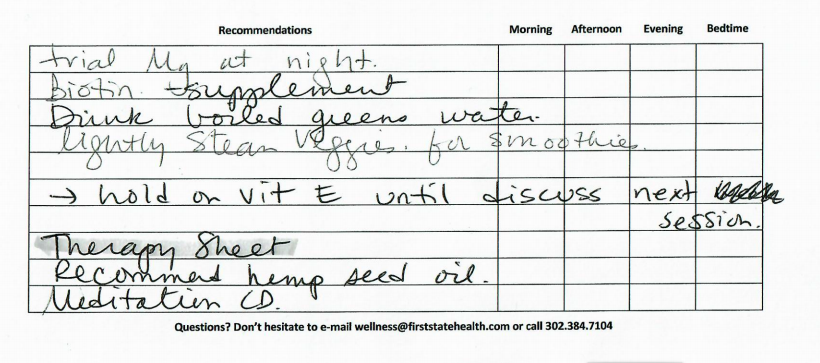 Recommendations Morning Afternoon Evening Bedtime
trial Mg at night.
biotin supplement
Drink boiled greens water.
lightly Steam Veggies. for smoothies.
→ hold on vit E until discuss next
session.
Therapy Sheet
Recommend hemp seed oil.
Meditation CD.
Questions? Don't hesitate to e-mail wellness@firststatehealth.com or call 302.384.7104